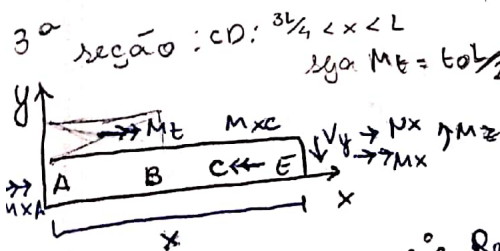 3ª seção : CD: 3L/4 < x < L
Mt = to L/2
y
Mt MxC Vy → Nx Mz
→→ Mx
MxA A B C E x
x